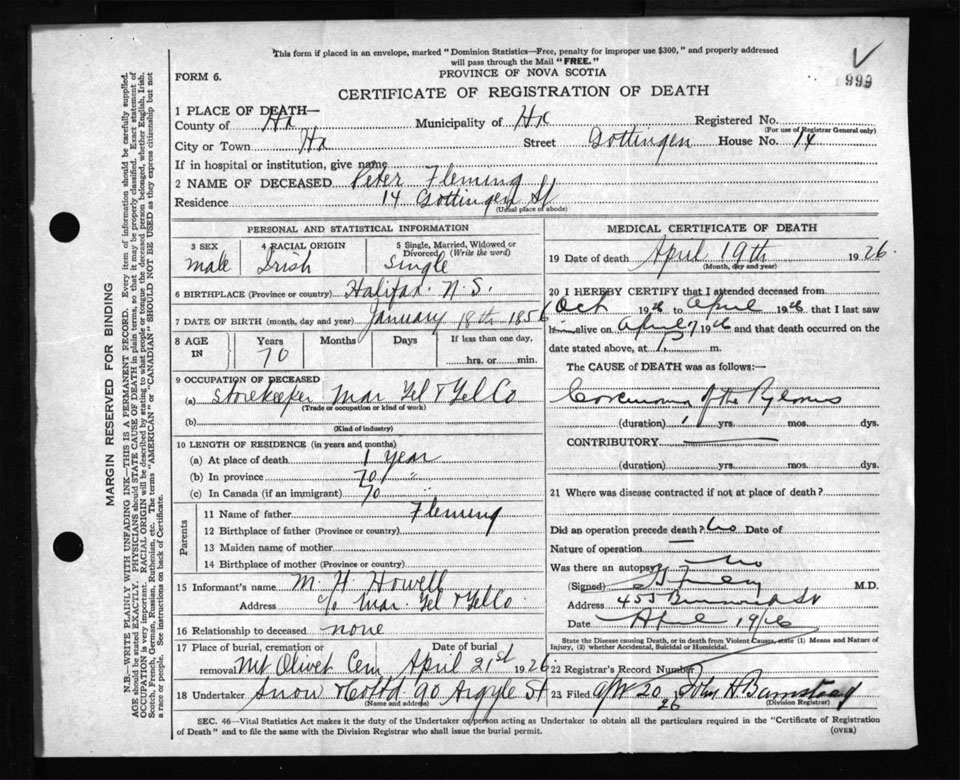 This form if placed in an envelope, marked "Dominion Statistics—Free, penalty for improper use $300," and properly addressed
will pass through the Mail "FREE."
999
FORM 6.
PROVINCE OF NOVA SCOTIA
CERTIFICATE OF REGISTRATION OF DEATH
1 PLACE OF DEATH—
County of Hx Municipality of Hx Registered No.
(For use of Registrar General only)
City or Town Hx Street Gottingen House No. 14
If in hospital or institution, give name
2 NAME OF DECEASED Peter Fleming
Residence 14 Gottingen St
(Usual place of abode)
PERSONAL AND STATISTICAL INFORMATION
3 SEX 4 RACIAL ORIGIN 5 Single, Married, Widowed or Divorced (Write the word)
male Irish Single
6 BIRTHPLACE (Province or country) Halifax. N.S.
7 DATE OF BIRTH (month, day and year) January 18th 1856
8 AGE IN Years Months Days If less than one day,
70 hrs. or min.
9 OCCUPATION OF DECEASED
(a) Storekeeper Mar Tel & Tel Co
(Trade or occupation or kind of work)
(b)
(Kind of industry)
10 LENGTH OF RESIDENCE (in years and months)
(a) At place of death 1 year
(b) In province 70 "
(c) In Canada (if an immigrant) 70 "
Parents
11 Name of father Fleming
12 Birthplace of father (Province or country)
13 Maiden name of mother
14 Birthplace of mother (Province or country)
15 Informant's name M. H. Howell
Address c/o Mar. Tel & Tel Co
16 Relationship to deceased none
17 Place of burial, cremation or removal Date of burial
Mt Olivet Cem April 21st 1926
18 Undertaker Snow & Co Ltd 90 Argyle St
(Name and address)
MEDICAL CERTIFICATE OF DEATH
19 Date of death April 19th 1926
(Month, day and year)
20 I HEREBY CERTIFY that I attended deceased from
Oct 19 to April 1926, that I last saw
him alive on April 1926 and that death occurred on
date stated above, at m.
The CAUSE of DEATH was as follows:—
of the Pylorus
(duration) 1 yrs. mos. dys.
CONTRIBUTORY
(duration) yrs. mos. dys.
21 Where was disease contracted if not at place of death?
Did an operation precede death? No Date of
Nature of operation
Was there an autopsy? no
(Signed) M.D.
Address 455 Brunswick St
Date April 19/26
State the Disease causing Death, or in death from Violent Causes, state (1) Means and Nature of
Injury, (2) whether Accidental, Suicidal or Homicidal.
22 Registrar's Record Number
23 Filed Apr 20 1926 John H Barnstead
(Division Registrar)
SEC. 46—Vital Statistics Act makes it the duty of the Undertaker or person acting as Undertaker to obtain all the particulars required in the "Certificate of Registration
of Death" and to file the same with the Division Registrar who shall issue the burial permit.
(OVER)
MARGIN RESERVED FOR BINDING
N.B.—WRITE PLAINLY WITH UNFADING INK—THIS IS A PERMANENT RECORD. Every item of information should be carefully supplied.
AGE should be stated EXACTLY. PHYSICIANS should STATE CAUSE OF DEATH in plain terms, so that it may be properly classified. Exact statement of
OCCUPATION is very important. RACIAL ORIGIN will be described by stating to what people or tongue the deceased person belonged, whether English, Irish,
Scotch, French, German, Russian, Ruthenian, etc. The terms "AMERICAN" or "CANADIAN" SHOULD NOT BE USED as they express citizenship but not
a race or people. See instructions on back of Certificate.